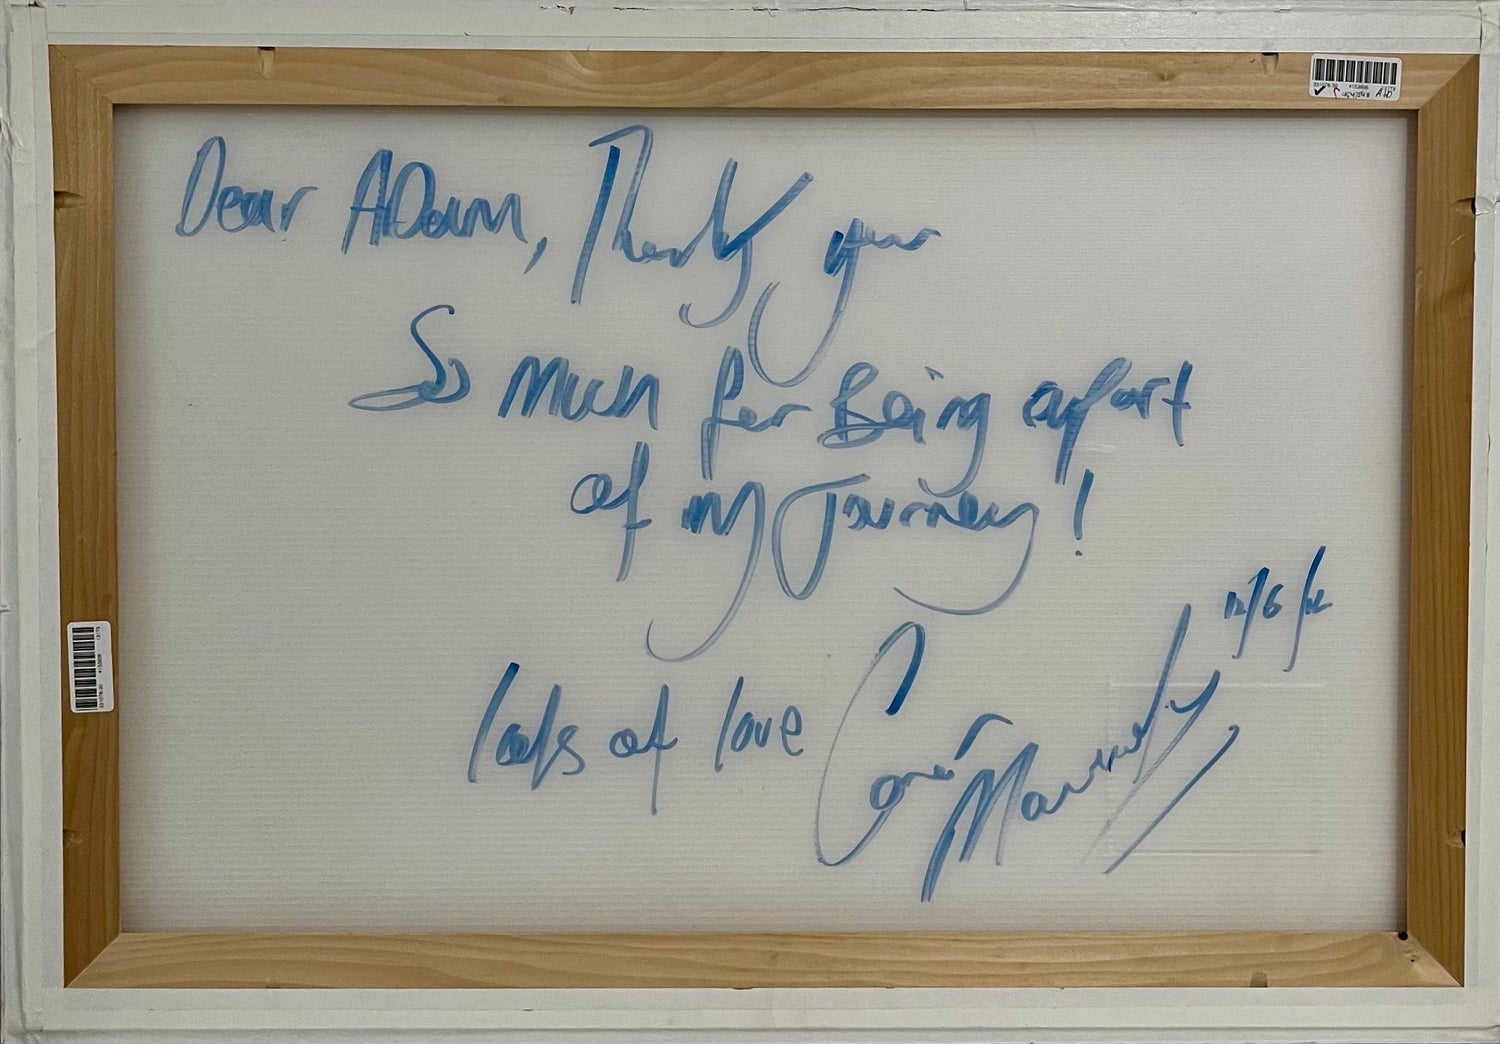 Dear ADam, Thank you
So Much for Being apart
of my Journey!
12/6/12
lots of love Conor Mccreedy